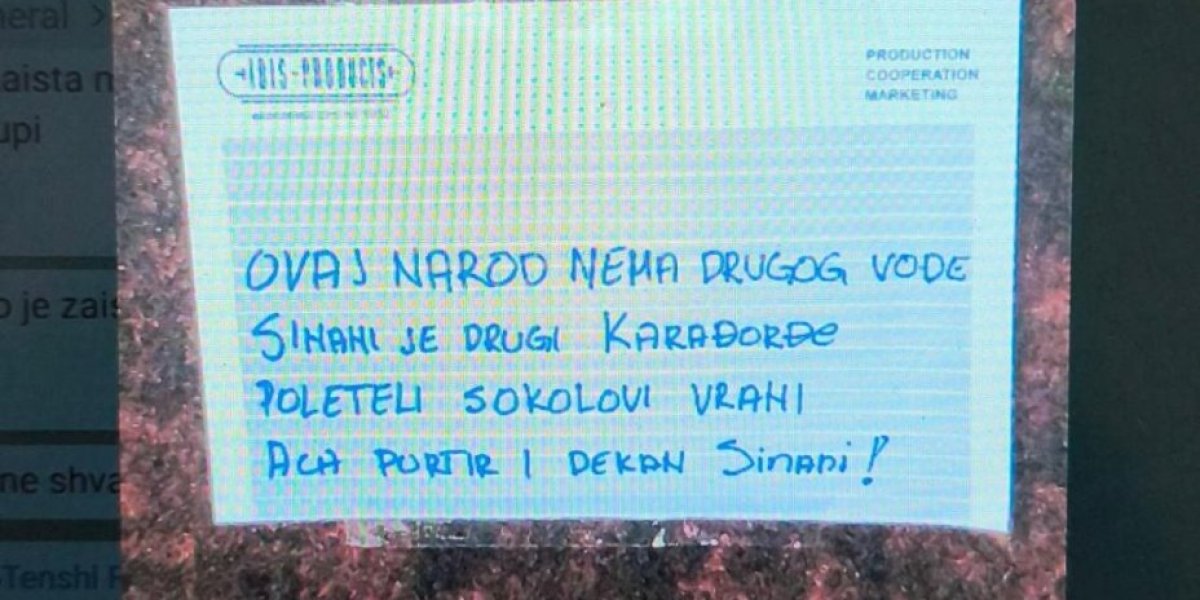 neral >
aista n
upi
o je zais
ne shva
Tenshi
IBIS-PRODUCTS
PRODUCTION
COOPERATION
MARKETING
OVAJ NAROD NEMA DRUGOG VOĐE
SINANI JE DRUGI KARAĐORĐE
POLETELI SOKOLOVI VRANI
ACA PORTIR I DEKAN SINANI!